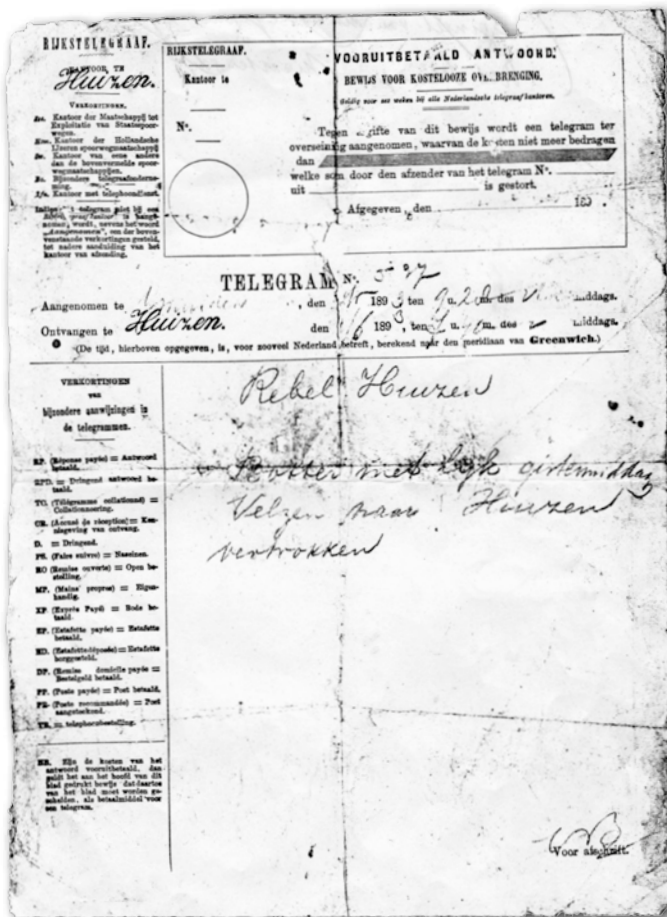 RIJKSTELEGRAAF.
KANTOOR TE
Huizen.
VERKORTINGEN.
Kantoor der Maatschappij tot
Exploitatie van Staatsspoor-
wegen.
Kantoor der Hollandsche
IJzeren spoorwegmaatschappij
Kantoor van eene andere
dan de bovenvermelde spoor-
wegmaatschappijen.
Bijzondere telegraafonderne-
ming.
Kantoor met telephoondienst.
Indien telegram niet bij een
is aange-
nomen, wordt, nevens het woord
„Aangenomen", een der boven-
venstaande verkortingen gesteld,
tot nadere aanduiding van het
kantoor van afzending.
RIJKSTELEGRAAF.
Kantoor te
No.
VOORUITBETAALD ANTWOORD.
BEWIJS VOOR KOSTELOOZE OVERBRENGING.
Geldig voor zes weken bij alle Nederlandsche telegraafkantoren.
Tegen afgifte van dit bewijs wordt een telegram ter
overseining aangenomen, waarvan de kosten niet meer bedragen
dan
welke som door den afzender van het telegram No.
uit is gestort.
Afgegeven, den 189
TELEGRAM No.
Aangenomen te , den 1893 ten 9 u. m. des middags.
Ontvangen te Huizen. den 1893, ten u. m. des middags.
(De tijd, hierboven opgegeven, is, voor zooveel Nederland betreft, berekend naar den meridiaan van Greenwich.)
VERKORTINGEN
van
bijzondere aanwijzingen in
de telegrammen.
RP. (Réponse payée) = Antwoord
betaald.
RPD. = Dringend antwoord be-
taald.
TC. (Télégramme collationné) =
Collationneering.
CR. (Accusé de réception) = Ken-
nisgeving van ontvang.
D. = Dringend.
FS. (Faire suivre) = Nazeinen.
RO (Remise ouverte) = Open be-
stelling.
MP. (Mains propres) = Eigen-
handig.
XP. (Exprès Payé) = Bode be-
taald.
EP. (Estafette payée) = Estafette
betaald.
ED. (Estafette déposée) = Estafette
borggesteld.
DP. (Remise domicile payée =
Bestelgeld betaald.
PP. (Poste payée) = Post betaald.
PR. (Poste recommandée) = Post
aangeteekend.
TR. = telephoonbestelling.
NB. Zijn de kosten van het
antwoord vooruitbetaald, dan
geldt het aan het hoofd van dit
blad gedrukt bewijs dat daartoe
van het blad moet worden ge-
scheiden, als betaalmiddel voor
een telegram.
Rebel Huizen
Botter met lijk gistermiddag
Velzen naar Huizen
vertrokken
Voor afschrift.